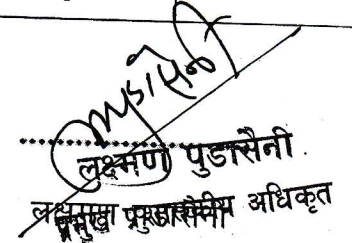 लक्ष्मण पुडासैनी
प्रमुख प्रशासकीय अधिकृत